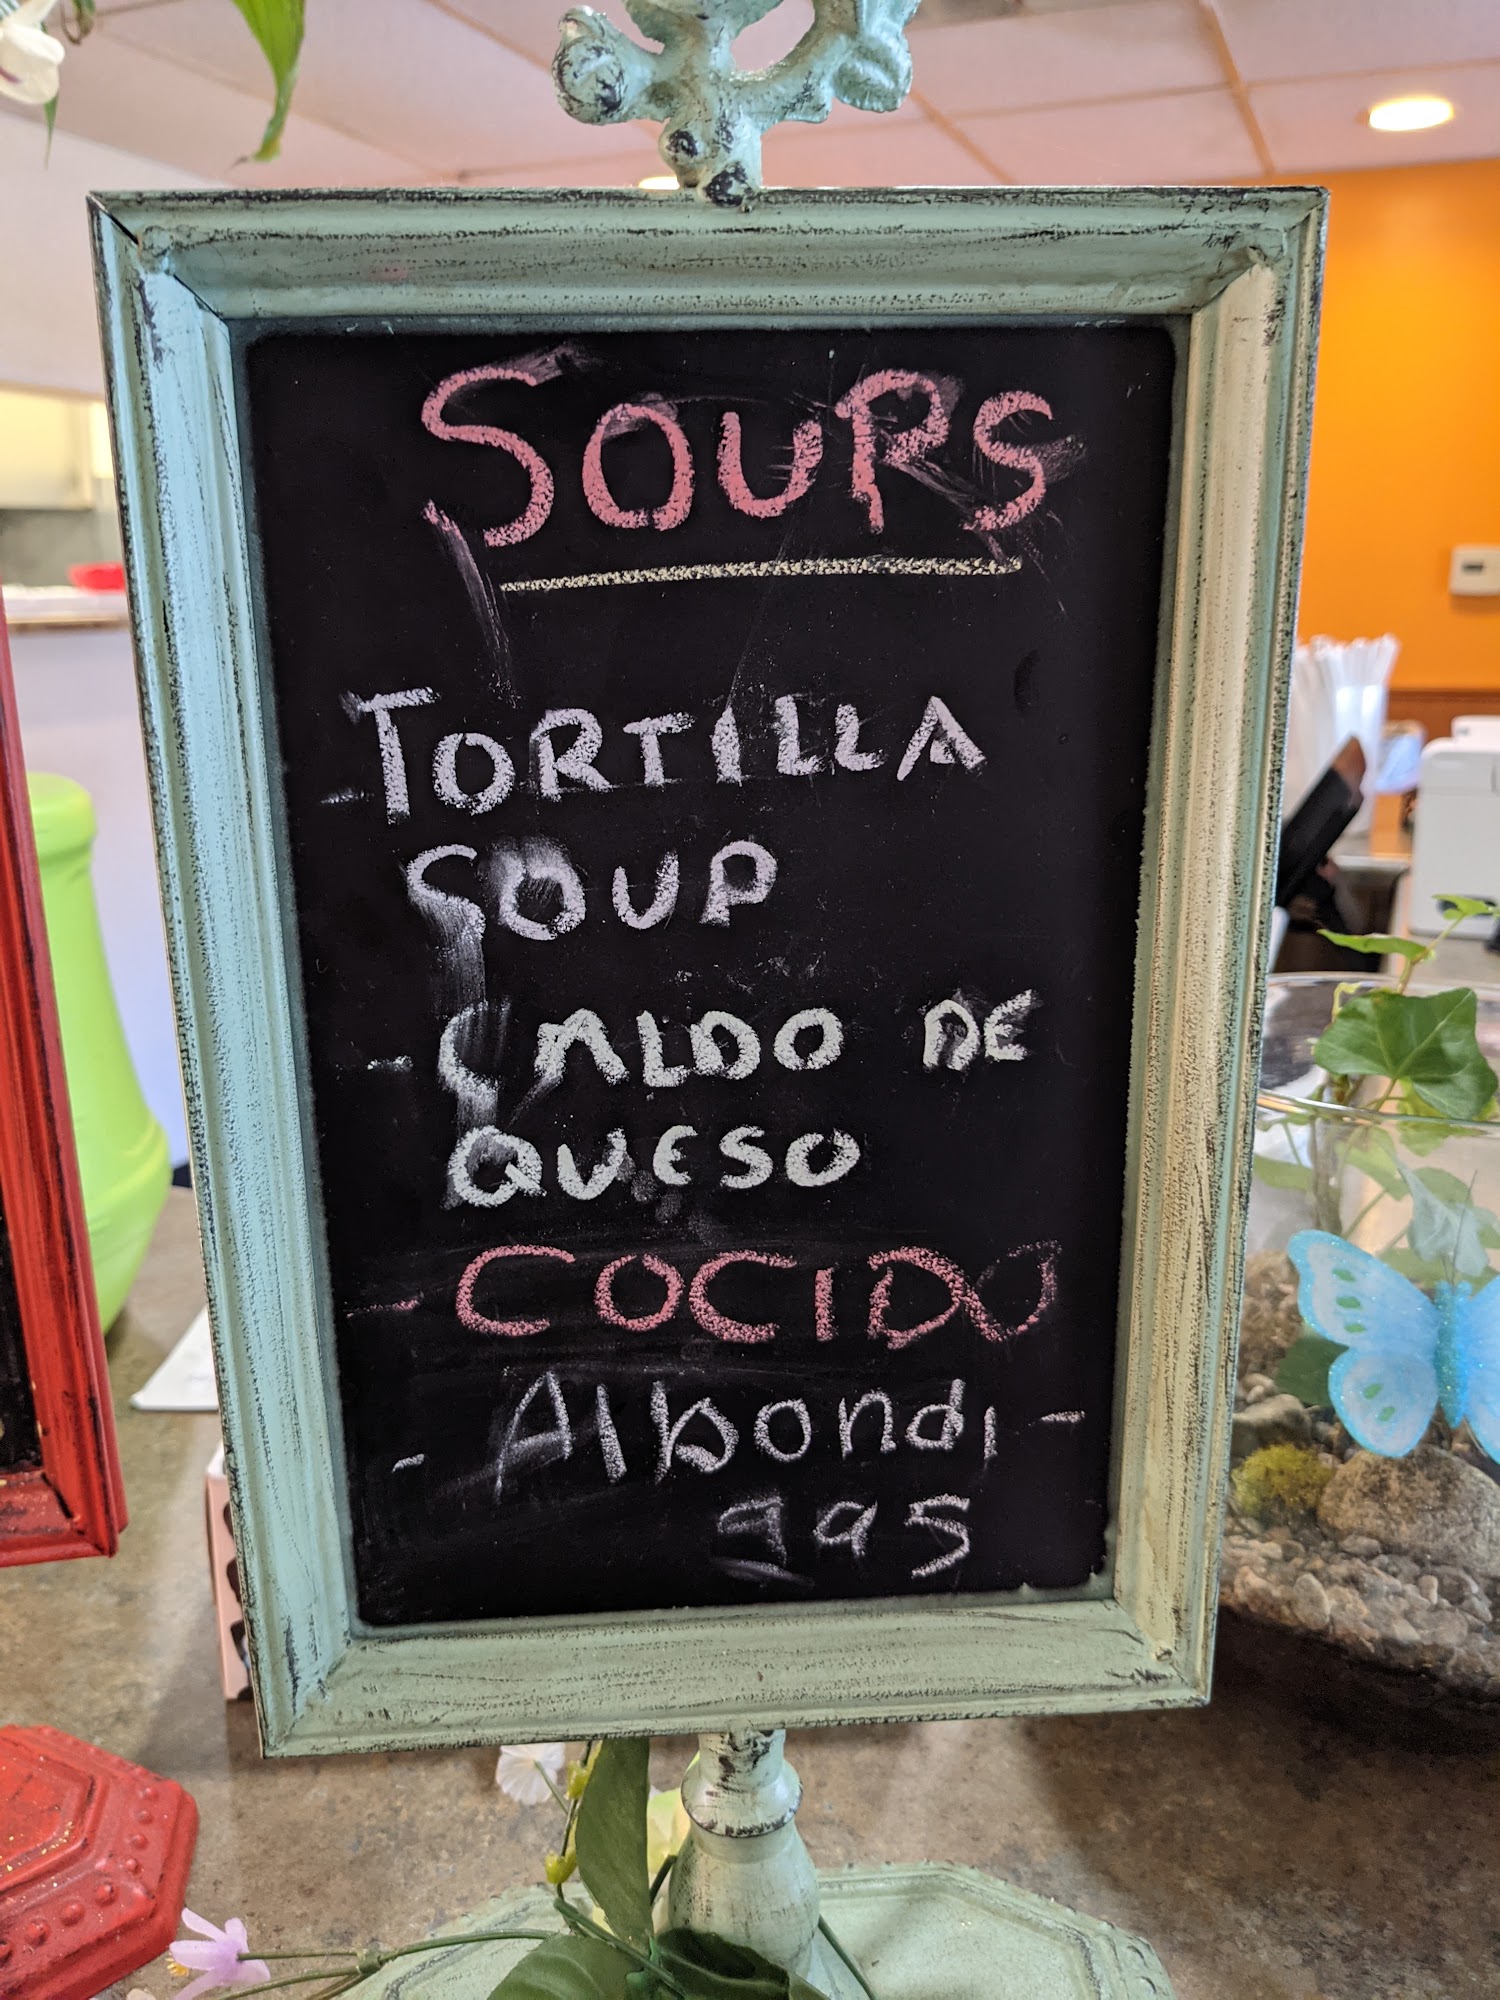 SOUPS
- TORTILLA
SOUP
- CALDO DE
QUESO
- COCIDO
- Albondi -
995